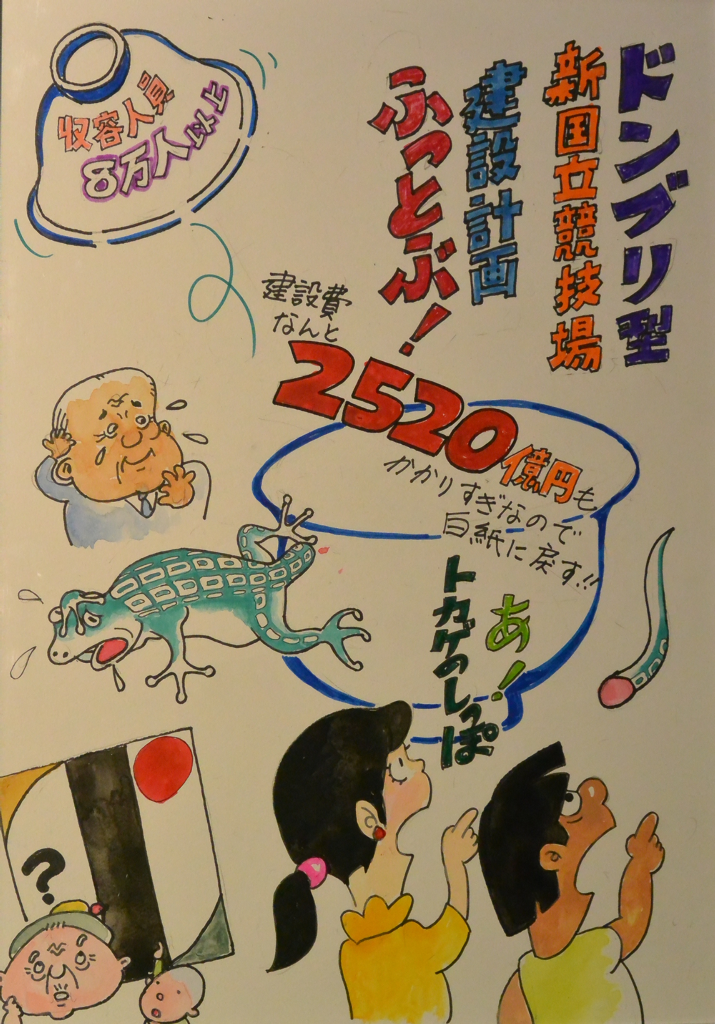 ドンブリ型
新国立競技場
建設計画
ふっとぶ!
収容人員
8万人以上
建設費
なんと
2520億円も
かかりすぎなので
白紙に戻す!!
あ!
トカゲのしっぽ
?